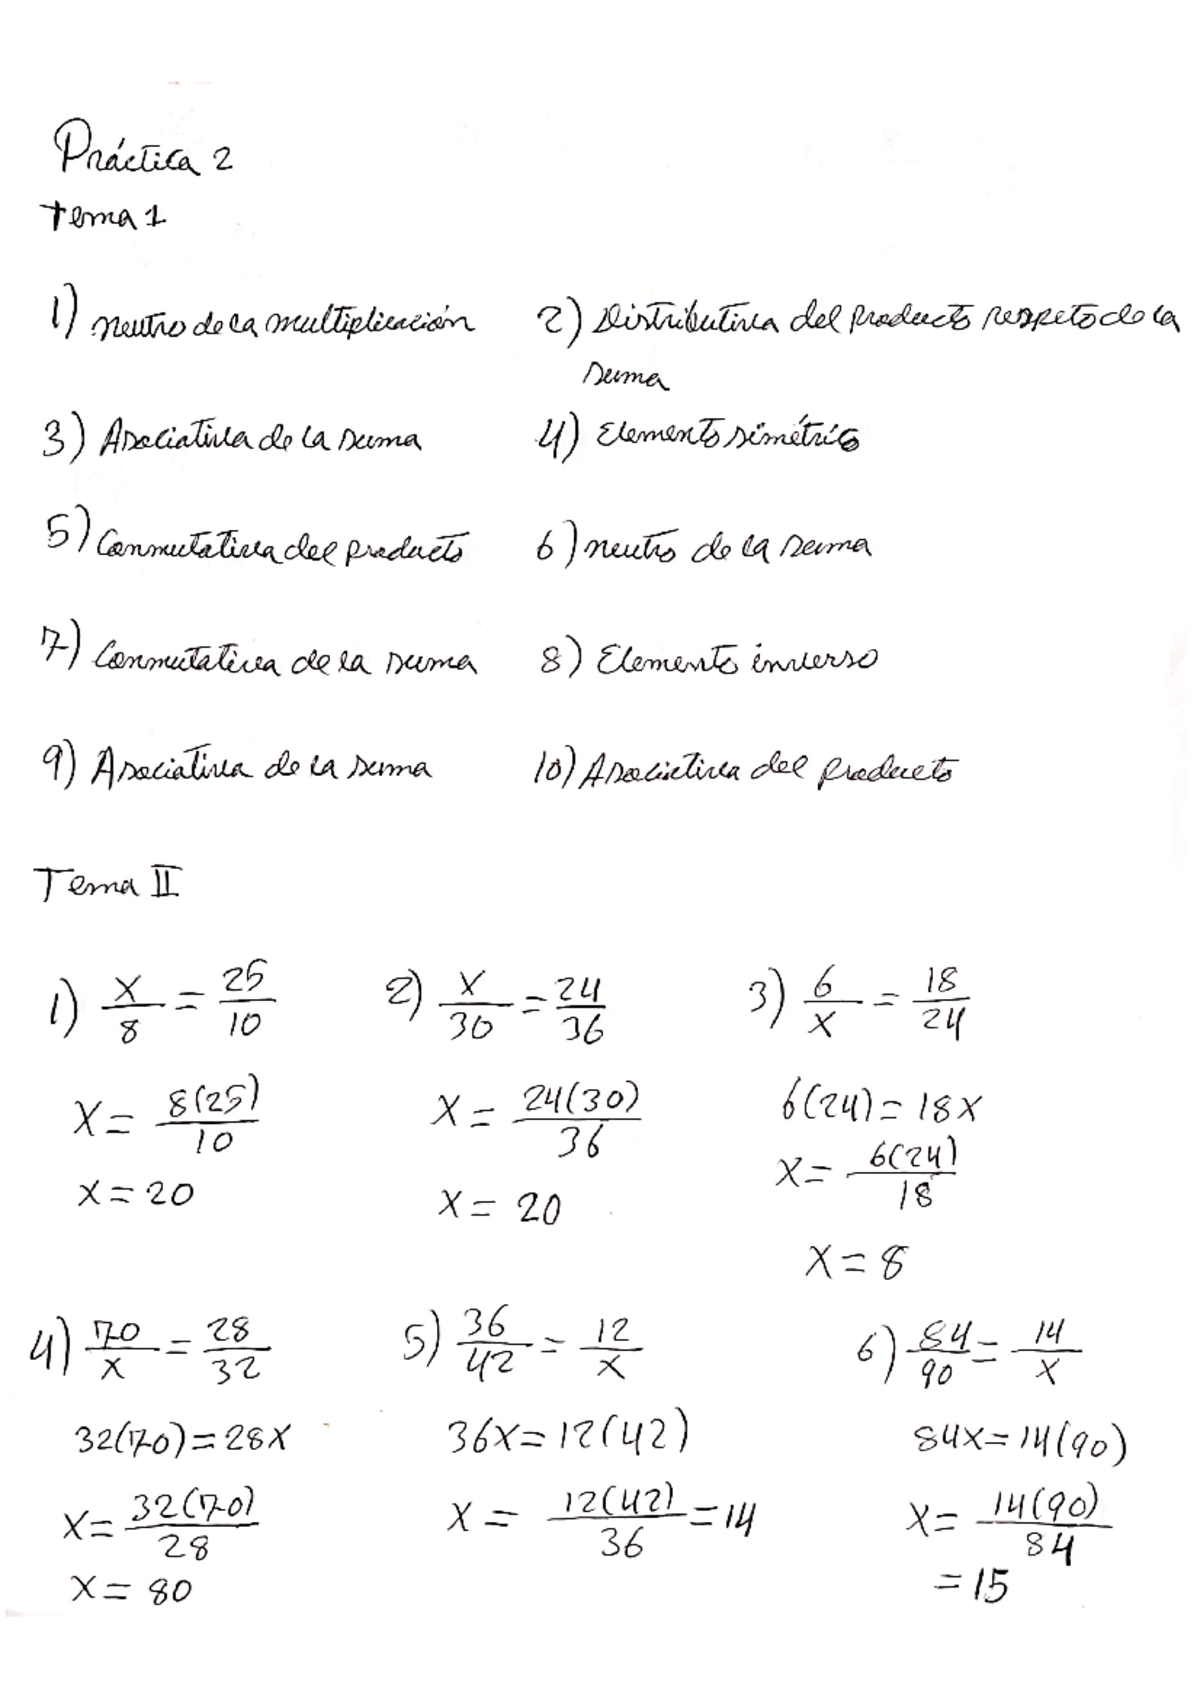 Práctica 2
Tema 1
1) neutro de la multiplicación 2) Distributiva del producto respeto de la
suma
3) Asociativa de la suma 4) Elemento simétrico
5) Conmutativa del producto 6) neutro de la suma
7) Conmutativa de la suma 8) Elemento inverso
9) Asociativa de la suma 10) Asociativa del producto
Tema II
1) x/8 = 25/10 2) x/30 = 24/36 3) 6/x = 18/24
x = 8(25)/10 x = 24(30)/36 6(24) = 18x
x = 20 x = 20 x = 6(24)/18
x = 8
4) 70/x = 28/32 5) 36/42 = 12/x 6) 84/90 = 14/x
32(70) = 28x 36x = 12(42) 84x = 14(90)
x = 32(70)/28 x = 12(42)/36 = 14 x = 14(90)/84
x = 80 = 15